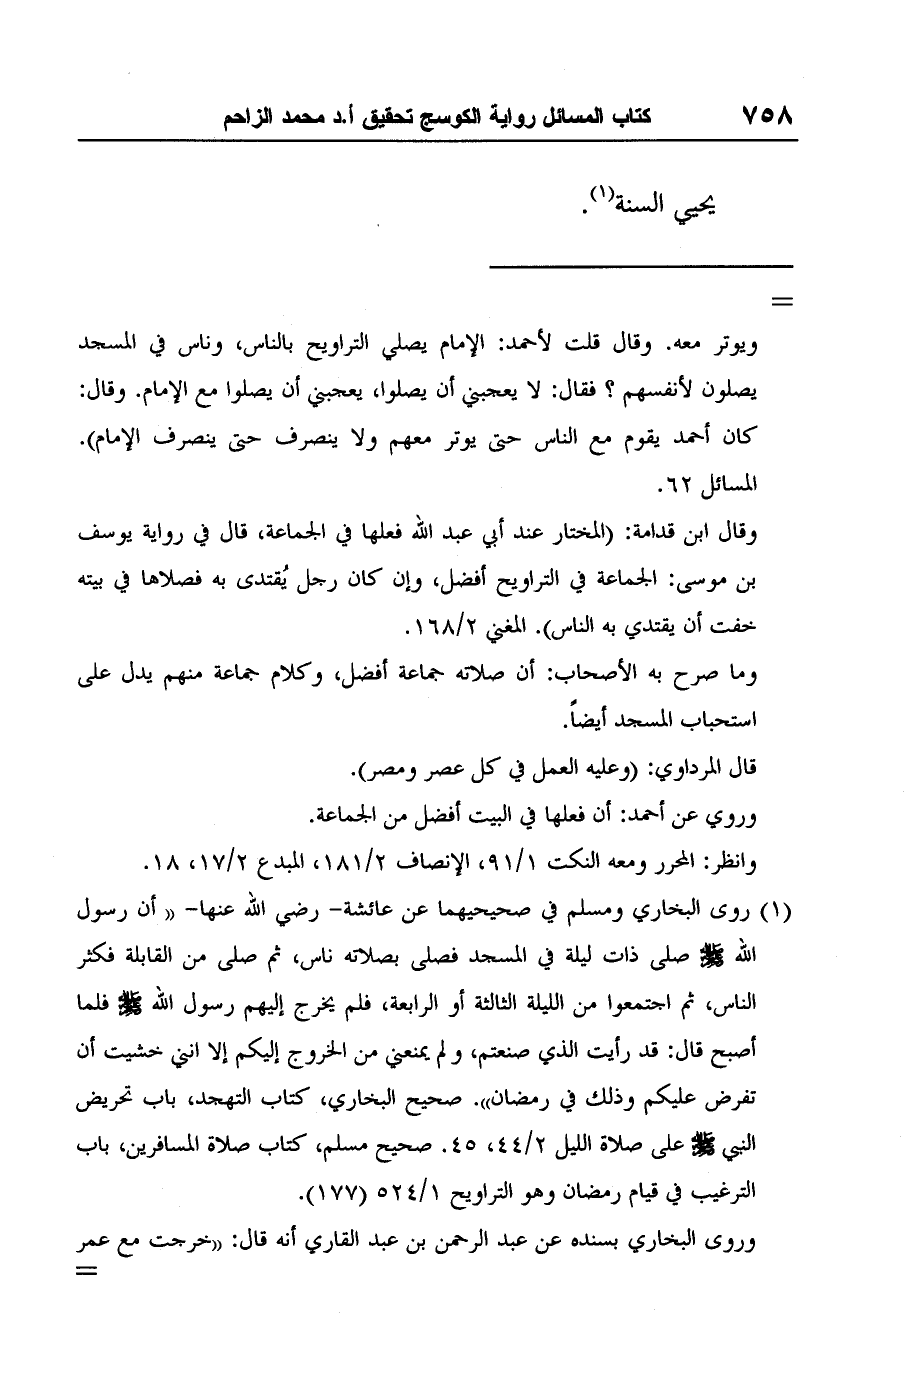 ٧٥٨ كتاب المسائل رواية الكوسج تحقيق أ.د محمد الزاحم
يحيي السنة(١).
=
ويوتر معه. وقال قلت لأحمد: الإمام يصلي التراويح بالناس، وناس في المسجد
يصلون لأنفسهم ؟ فقال: لا يعجبني أن يصلوا، يعجبني أن يصلوا مع الإمام. وقال:
كان أحمد يقوم مع الناس حتى يوتر معهم ولا ينصرف حتى ينصرف الإمام).
المسائل ٦٢.
وقال ابن قدامة: (المختار عند أبي عبد الله فعلها في الجماعة، قال في رواية يوسف
بن موسى: الجماعة في التراويح أفضل، وإن كان رجل يُقتدى به فصلاها في بيته
خفت أن يقتدي به الناس). المغني ١٦٨/٢.
وما صرح به الأصحاب: أن صلاته جماعة أفضل، وكلام جماعة منهم يدل على
استحباب المسجد أيضاً.
قال المرداوي: (وعليه العمل في كل عصر ومصر).
وروي عن أحمد: أن فعلها في البيت أفضل من الجماعة.
وانظر: المحرر ومعه النكت ٩١/١، الإنصاف ١٨١/٢، المبدع ١٧/٢، ١٨.
(١) روى البخاري ومسلم في صحيحيهما عن عائشة- رضي الله عنها- « أن رسول
الله ﷺ صلى ذات ليلة في المسجد فصلى بصلاته ناس، ثم صلى من القابلة فكثر
الناس، ثم اجتمعوا من الليلة الثالثة أو الرابعة، فلم يخرج إليهم رسول الله ﷺ فلما
أصبح قال: قد رأيت الذي صنعتم، و لم يمنعني من الخروج إليكم إلا انني خشيت أن
تفرض عليكم وذلك في رمضان». صحيح البخاري، كتاب التهجد، باب تحريض
النبي ﷺ على صلاة الليل ٤٤/٢، ٤٥. صحيح مسلم، كتاب صلاة المسافرين، باب
الترغيب في قيام رمضان وهو التراويح ٥٢٤/١ (١٧٧).
وروى البخاري بسنده عن عبد الرحمن بن عبد القاري أنه قال: «خرجت مع عمر
=